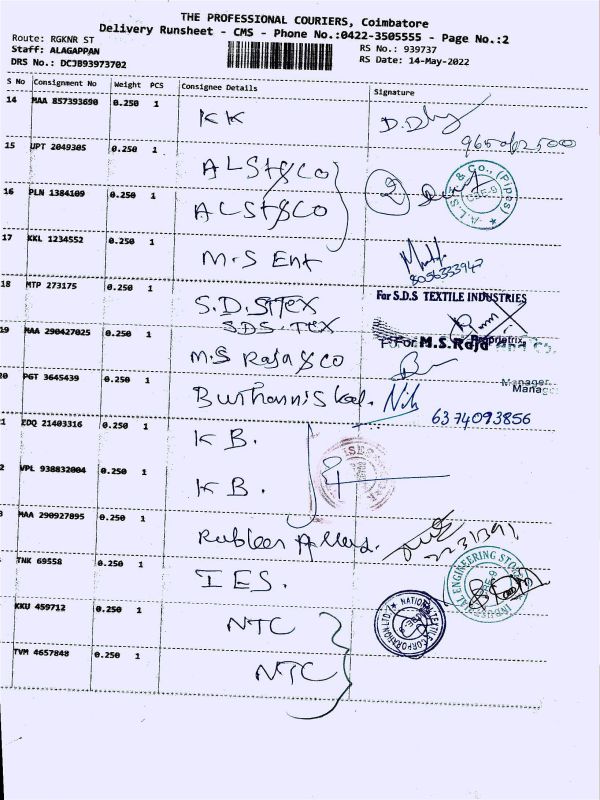 THE PROFESSIONAL COURIERS, Coimbatore
Delivery Runsheet - CMS - Phone No.:0422-3505555 - Page No.:2
Route: RGKNR ST
Staff: ALAGAPPAN
DRS No.: DCJB93973702
RS No.: 939737
RS Date: 14-May-2022
S No Consignment No Weight PCS Consignee Details Signature
14 MAA 857393690 0.250 1 KK
15 UPT 2049305 0.250 1 ALST&CO
16 PLN 1384109 0.250 1 ALST&CO
& Co., (Pipes)
17 KKL 1234552 0.250 1 M.S Ent
8056333947
18 MTP 273175 0.250 1 S.D.STTEX
SDS.TEX
For S.D.S TEXTILE INDUSTRIES
Proprietrix
19 MAA 290427025 0.250 1 M.S Raja & co
For M.S.Raja and Co.
Manager
20 PGT 3645439 0.250 1
6374093856
1 EDQ 21403316 0.250 1 K B.
2 VPL 938832004 0.250 1 K B.
3 MAA 290927895 0.250 1
TNK 69558 0.250 1 IES.
ENGINEERING STORES
KKU 459712 0.250 1 NTC
NATIONAL TEXTILE CORPORATION LTD
TVM 4657848 0.250 1 NTC